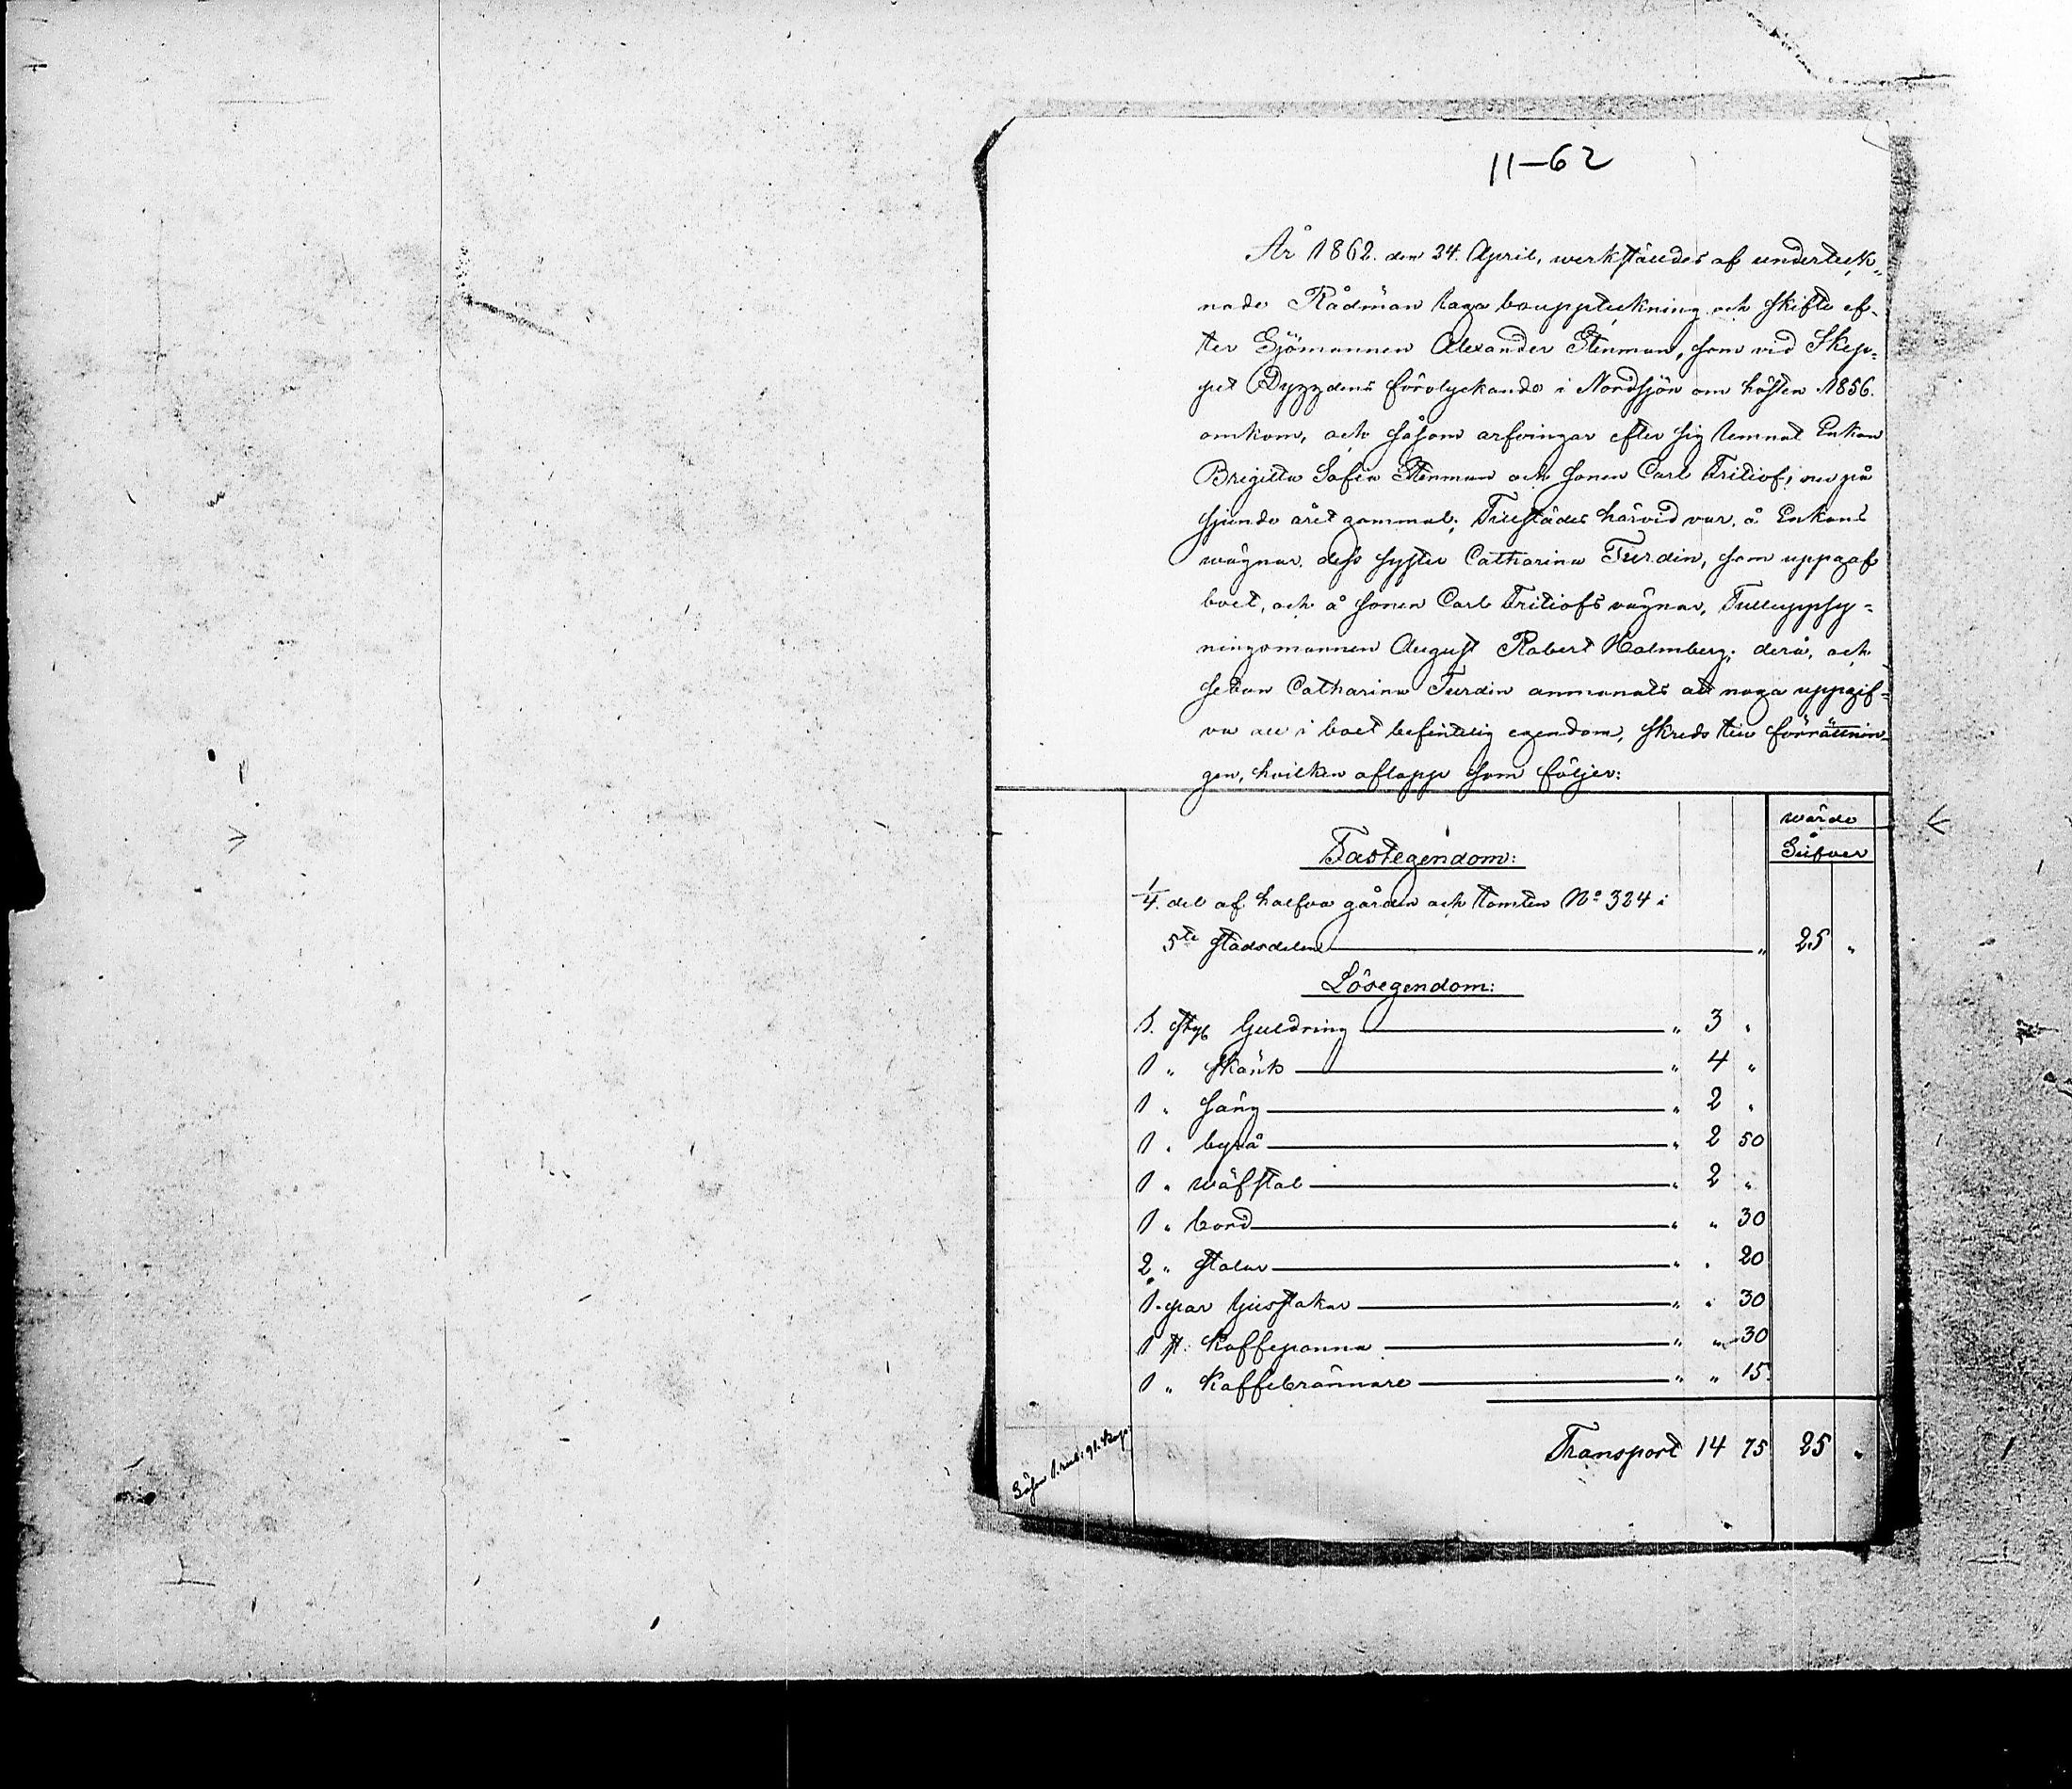 11-62
År 1862. den 24. April, werkställdes af underteck„
nade Rådmän laga bouppteckning och skifte ef-
ter Sjömannen Alexander Stenman, som vid Skep-
pet Dygdens förolyckande i Nordsjön om hösten 1856.
omkom, och såsom arfvingar efter sig lemnat Enkan
Brigitta Sofia Stenman och sonen Carl Fritiof, nu på
sjunde året gammal; Tillstädes härvid var, å Enkans
wägnar, dess syster Catharina Turdin, som uppgaf
boet, och å sonen Carl Fritiofs vägnar, Tulluppsy-
ningsmannen August Robert Holmberg; derå, och
sedan Catharina Turdin anmanats att noga uppgif-
va all i boet befintelig egendom, skreds till förrättnin-
gen, hvilken aflopp som följer:
wärde
Silfver
Fastegendom:
1/4 del af halfva gården och tomten No 324 i
5te stadsdelen „ 25 „
Lösegendom:
1. styc Guldring „ 3 „
1 „ skänk „ 4 „
1 „ säng „ 2 „
1 „ byrå „ 2 50
1 „ wäfstol „ 2 „
1 „ bord „ „ 30
2 „ stolar „ „ 20
1 par ljusstakar „ „ 30
1 st. Kaffepanna „ „ 30
1 „ Kaffebrännare „ „ 15
Transport 14 75 25 „
Lösen 1. rub. 91. kop.